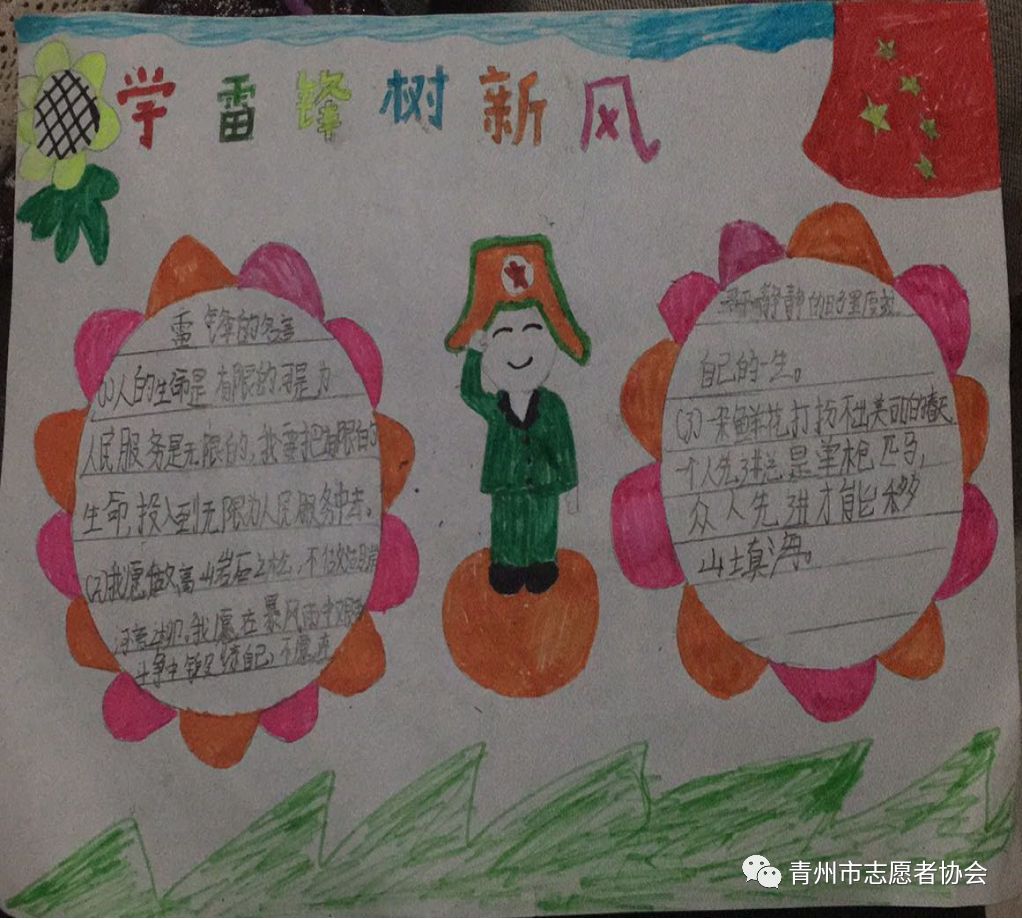 学雷锋树新风
雷锋的名言
(1)人的生命是有限的可是为
人民服务是无限的,我要把有限的
生命,投入到无限为人民服务中去。
(2)我愿做高山岩石之松,不做
我愿在暴风雨中艰
斗争中锻炼自己,不愿在
静静的日子里度过
自己的一生。
(3)一朵鲜花打扮不出美丽的春天
个人先进总是单枪匹马,
众人先进才能移
山填海。
青州市志愿者协会